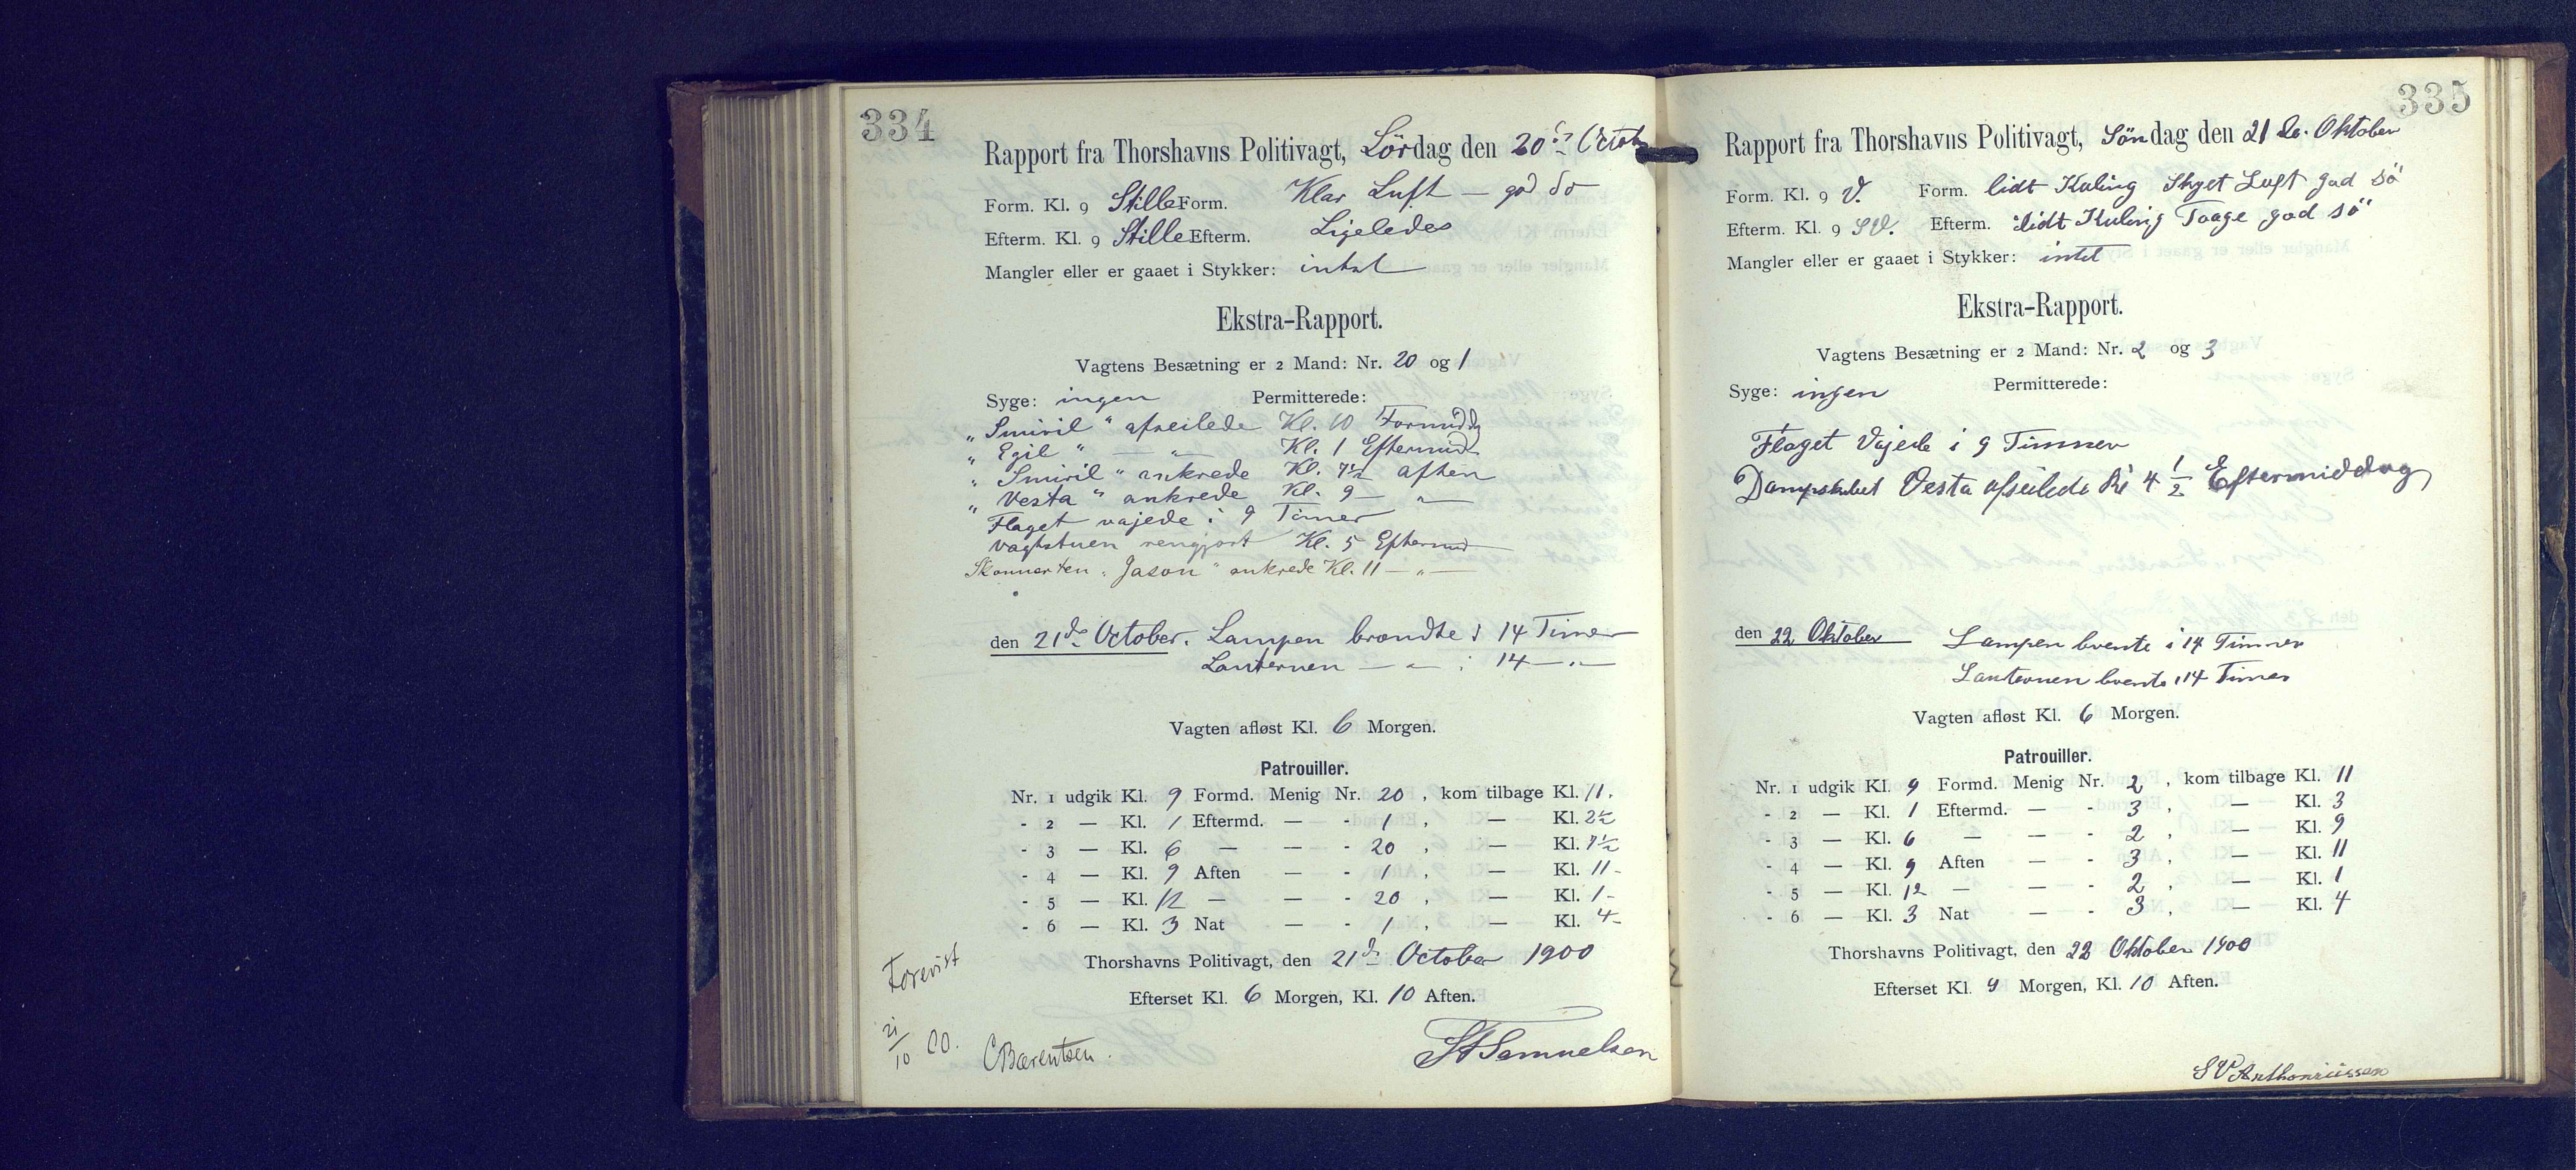 334
Rapport fra Thorshavns Politivagt, Lördag den 20de Octob
Form. Kl. 9 Stille Form. Klar Luft — god So
Efterm. Kl. 9 Stille Efterm. Ligeledes
Mangler eller er gaaet i Stykker: intet
Ekstra-Rapport.
Vagtens Besætning er 2 Mand: Nr. 20 og 1
Syge: ingen Permitterede:
„Smiril“ afseilede Kl. 10 Formiddg
„Egil“ — „ — Kl. 1 Eftermid
„Smiril“ ankrede Kl. 7½ aften
„Vesta“ ankrede Kl. 9 — „ —
Flaget vajede i 9 Timer
Vagtstuen rengjort Kl. 5 Eftermd
Skonnerten „Jason“ ankrede Kl. 11 — „ —
den 21de October. Lampen brændte i 14 Timer
Lanternen — „ — i 14 — „ —
Vagten afløst Kl. 6 Morgen.
Patrouiller.
Nr. 1 udgik Kl. 9 Formd. Menig Nr. 20 , kom tilbage Kl. 11.
- 2 — Kl. 1 Eftermd. — - 1 , — Kl. 2½
- 3 — Kl. 6 — — - 20 , — Kl. 7½
- 4 — Kl. 9 Aften — - 1 , — Kl. 11 -
- 5 — Kl. 12 — — - 20 , — Kl. 1 -
- 6 — Kl. 3 Nat — - 1 , — Kl. 4 -
Thorshavns Politivagt, den 21de October 1900
Efterset Kl. 6 Morgen, Kl. 10 Aften.
Forevist
21/10 00. CBærentsen.
Samuelsen
335
Rapport fra Thorshavns Politivagt, Söndag den 21 de. Oktober
Form. Kl. 9 V. Form. lidt Kuling Skyet Luft god sö
Efterm. Kl. 9 SV. Efterm. lidt Kuling Taage god sö
Mangler eller er gaaet i Stykker: intet
Ekstra-Rapport.
Vagtens Besætning er 2 Mand: Nr. 2 og 3
Syge: ingen Permitterede:
Flaget Vajede i 9 Timmer
Dampskibet Vesta afseilede Kl 4 1/2 Eftermiddag
den 22 Oktober Lampen brente i 14 Timmer
Lanternen brente i 14 Timer
Vagten afløst Kl. 6 Morgen.
Patrouiller.
Nr. 1 udgik Kl. 9 Formd. Menig Nr. 2 , kom tilbage Kl. 11
- 2 — Kl. 1 Eftermd. — - 3 , — Kl. 3
- 3 — Kl. 6 — — - 2 , — Kl. 9
- 4 — Kl. 9 Aften — - 3 , — Kl. 11
- 5 — Kl. 12 — — - 2 , — Kl. 1
- 6 — Kl. 3 Nat — - 3 , — Kl. 4
Thorshavns Politivagt, den 22 Oktober 1900
Efterset Kl. 9 Morgen, Kl. 10 Aften.